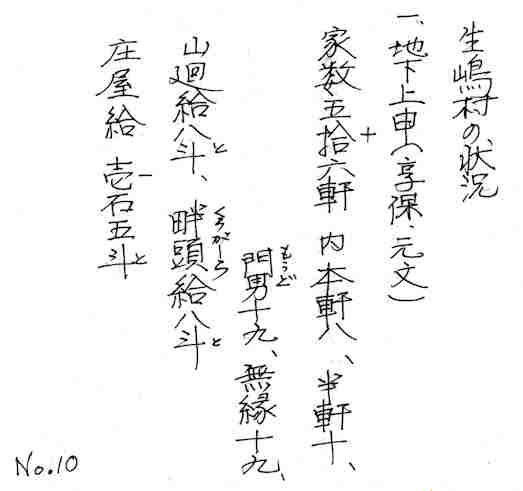 生嶋村の状況
一、地下上申(享保、元文)
家数五拾六軒 内本軒八、半軒十、
門男十九、無縁十九、
山廻給八斗、畔頭給八斗
庄屋給 壱石五斗
十
もうど
と
くろがしら
と
一
と
No.10